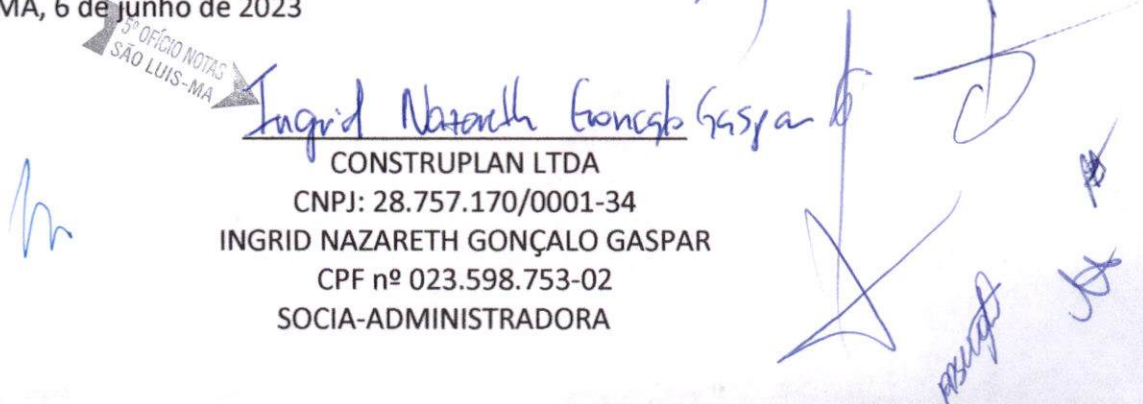 MA, 6 de junho de 2023
5º OFÍCIO NOTAS
SÃO LUIS-MA
Ingrid Nazareth Gonçalo Gaspar
CONSTRUPLAN LTDA
CNPJ: 28.757.170/0001-34
INGRID NAZARETH GONÇALO GASPAR
CPF nº 023.598.753-02
SOCIA-ADMINISTRADORA